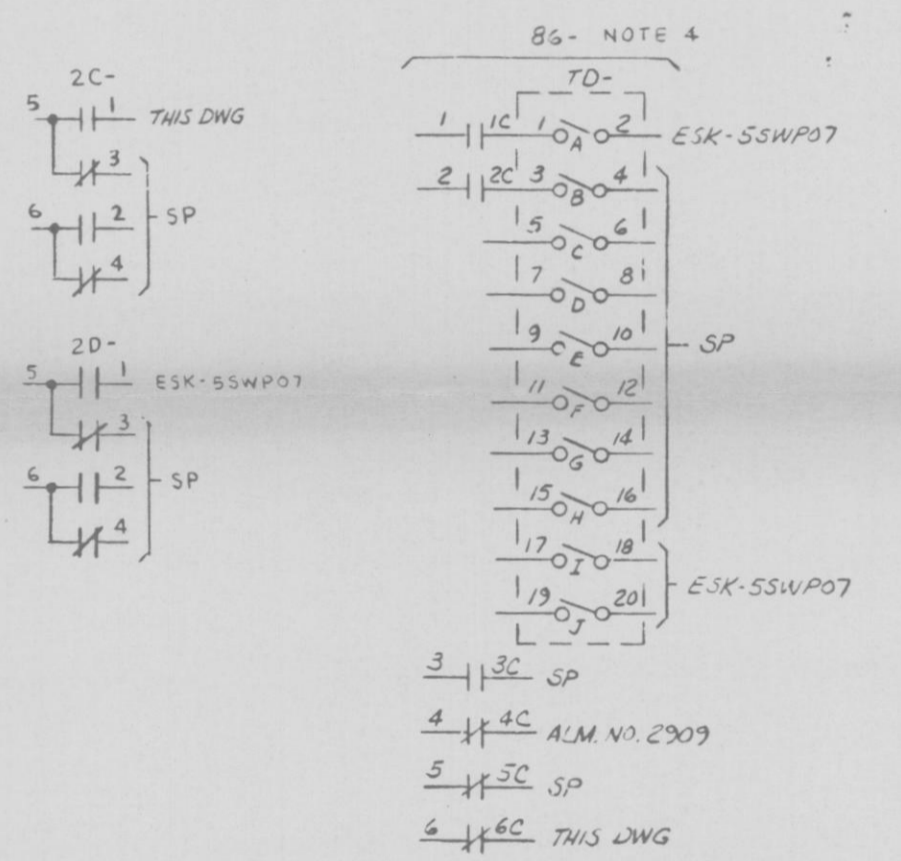 86- NOTE 4
2C-
TD-
5 1 THIS DWG
3
6 2 SP
4
2D-
5 1 ESK-5SWP07
3
6 2 SP
4
1 1C 1 A 2 ESK-5SWP07
2 2C 3 B 4
5 C 6
7 D 8
9 E 10 SP
11 F 12
13 G 14
15 H 16
17 I 18
ESK-5SWP07
19 J 20
3 3C SP
4 4C ALM. NO. 2909
5 5C SP
6 6C THIS DWG